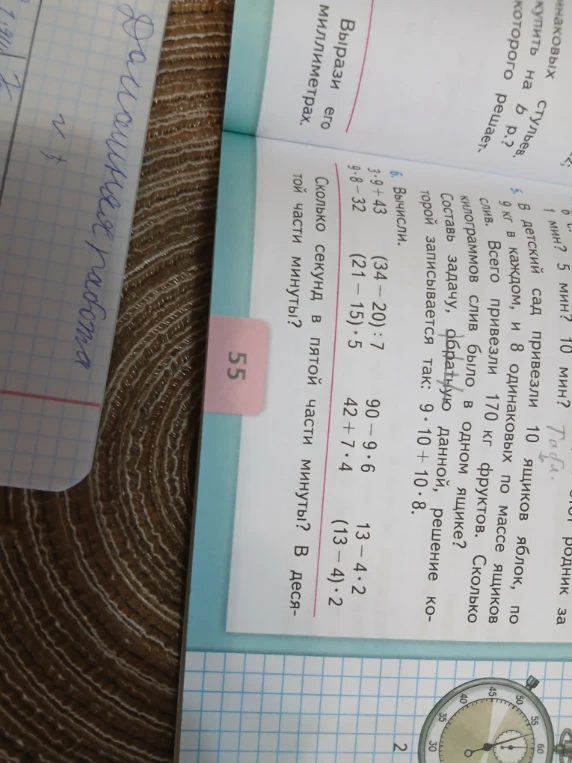 инаковых стульев.
купить на 6 р.?
которого решает.
Вырази его
миллиметрах.
родник за
1 мин? 5 мин? 10 мин?
5. В детский сад привезли 10 ящиков яблок, по
9 кг в каждом, и 8 одинаковых по массе ящиков
слив. Всего привезли 170 кг фруктов. Сколько
килограммов слив было в одном ящике?
Составь задачу, обратную данной, решение ко-
торой записывается так: 9 · 10 + 10 · 8.
6. Вычисли.
3 · 9 + 43 (34 − 20) : 7 90 − 9 · 6 13 − 4 · 2
9 · 8 − 32 (21 − 15) · 5 42 + 7 · 4 (13 − 4) · 2
Сколько секунд в пятой части минуты? В деся-
той части минуты?
55
Домашняя работа
2
60
55
50
45
40
35
30